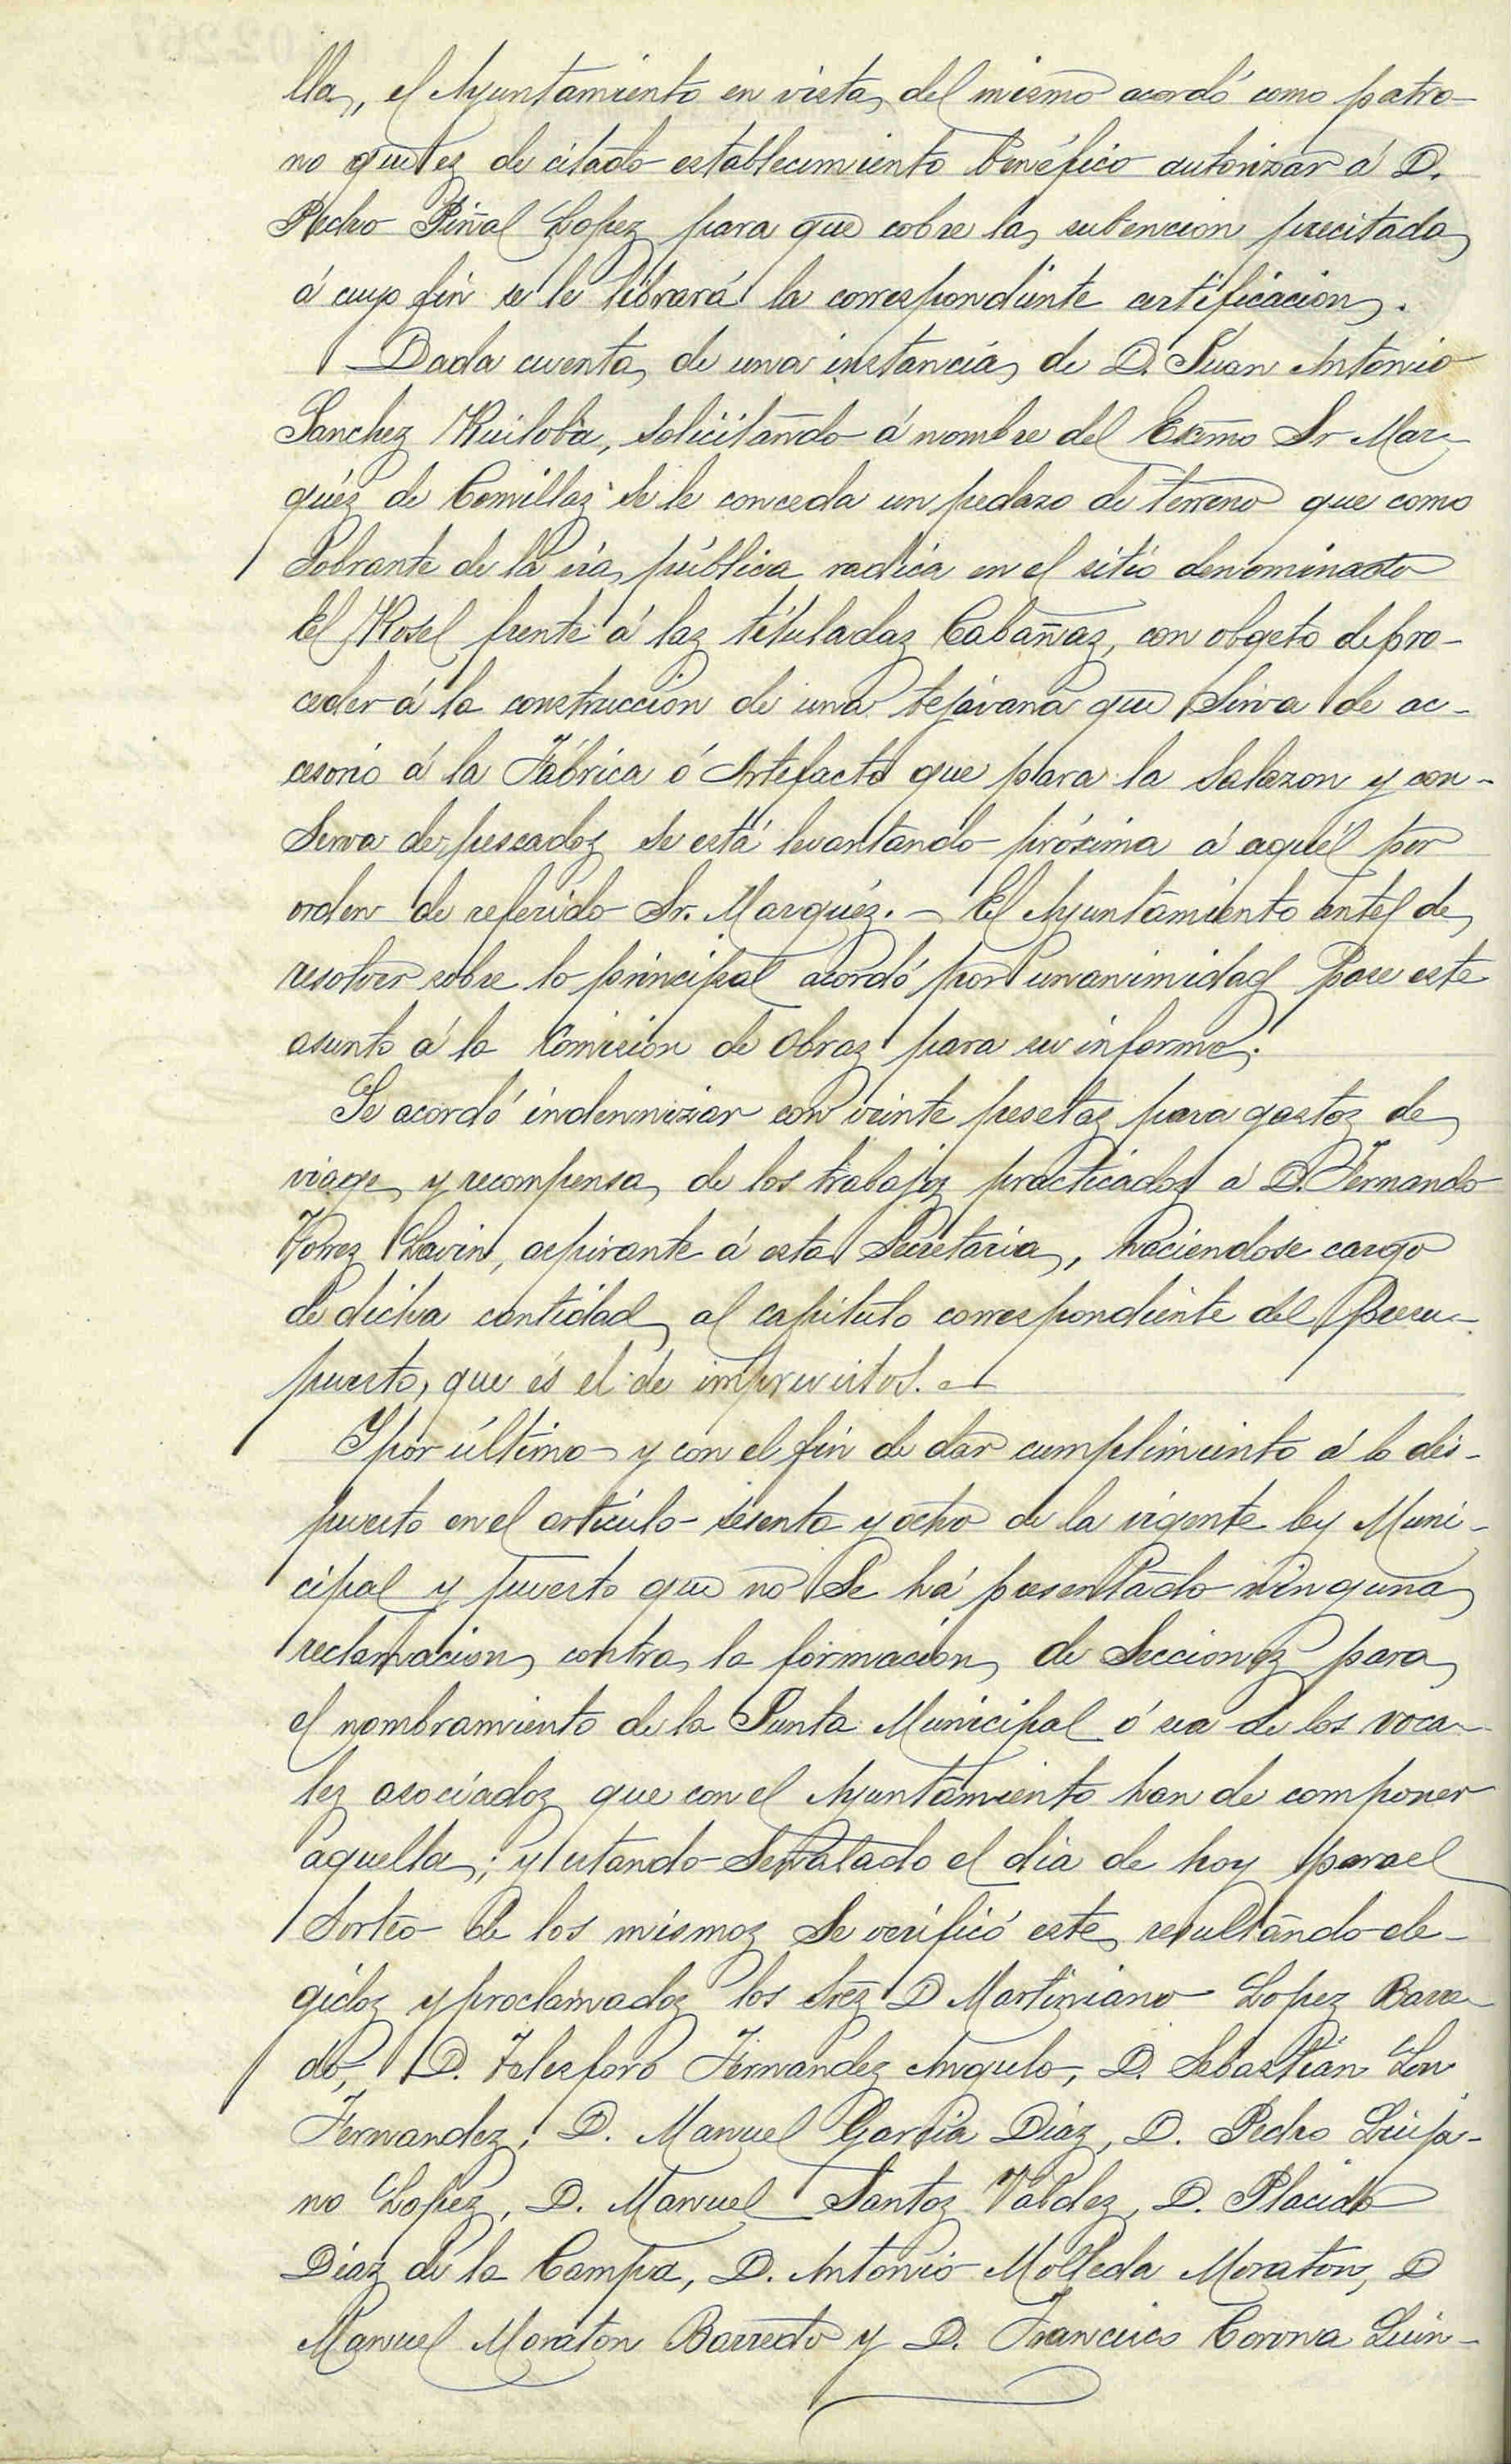 lla, el Ayuntamiento en vista del mismo acordó como patro-
no que es de citado establecimiento benéfico autorizar á D.
Pedro Piñal Lopez para que cobre la subencion precitada
á cuyo fin se le librará la correspondiente certificacion.
Dada cuenta de una instancia de D. Juan Antonio
Sanchez Ruiloba, solicitando á nombre del Excmo Sr Mar-
qués de Comillas se le conceda un pedazo de terreno que como
Sobrante de la via pública radica en el sitio denominado
El Rosel frente á las tituladas Cabañas, con objeto de pro-
ceder á la construccion de una tejavana que Sirva de ac-
cesorio á la Fábrica ó Artefacto que para la Salazon y con-
Serva de pescados se está levantando próxima á aquél por
orden de referido Sr. Marqués. - El Ayuntamiento antes de
resolver sobre lo principal acordó por unanimidad pase este
asunto á la Comision de Obras para su informe.
Se acordó indemnizar con veinte pesetas para gastos de
viage y recompensa de los trabajos practicados á D. Fernando
Torres Lavin, aspirante á esta Secretaria, haciendose cargo
de dicha cantidad al capitulo correspondiente del Presu-
puesto, que és el de imprevistos.
Y por último y con el fin de dar cumplimiento á lo dis-
puesto en el articulo sesenta y ocho de la vigente ley Muni-
cipal y puesto que no Se há presentado ninguna
reclamacion contra la formacion de Secciones para
el nombramiento de la Junta Municipal ó sea de los voca-
les asociados que con el Ayuntamiento han de componer
aquella; y estando Señalado el dia de hoy para el
Sorteo de los mismos Se verificó este resultando ele-
gidos y proclamados los Sres D Martiniano Lopez Barre-
do, D. Telesforo Fernandez Angulo, D. Sebastián Lon
Fernandez, D. Manuel Garcia Diaz, D. Pedro
no Lopez, D. Manuel Santos Valdes, D. Placido
Diaz de la Campa, D. Antonio Molleda Moraton, D
Manuel Moraton Barredo y D. Francisco Corona